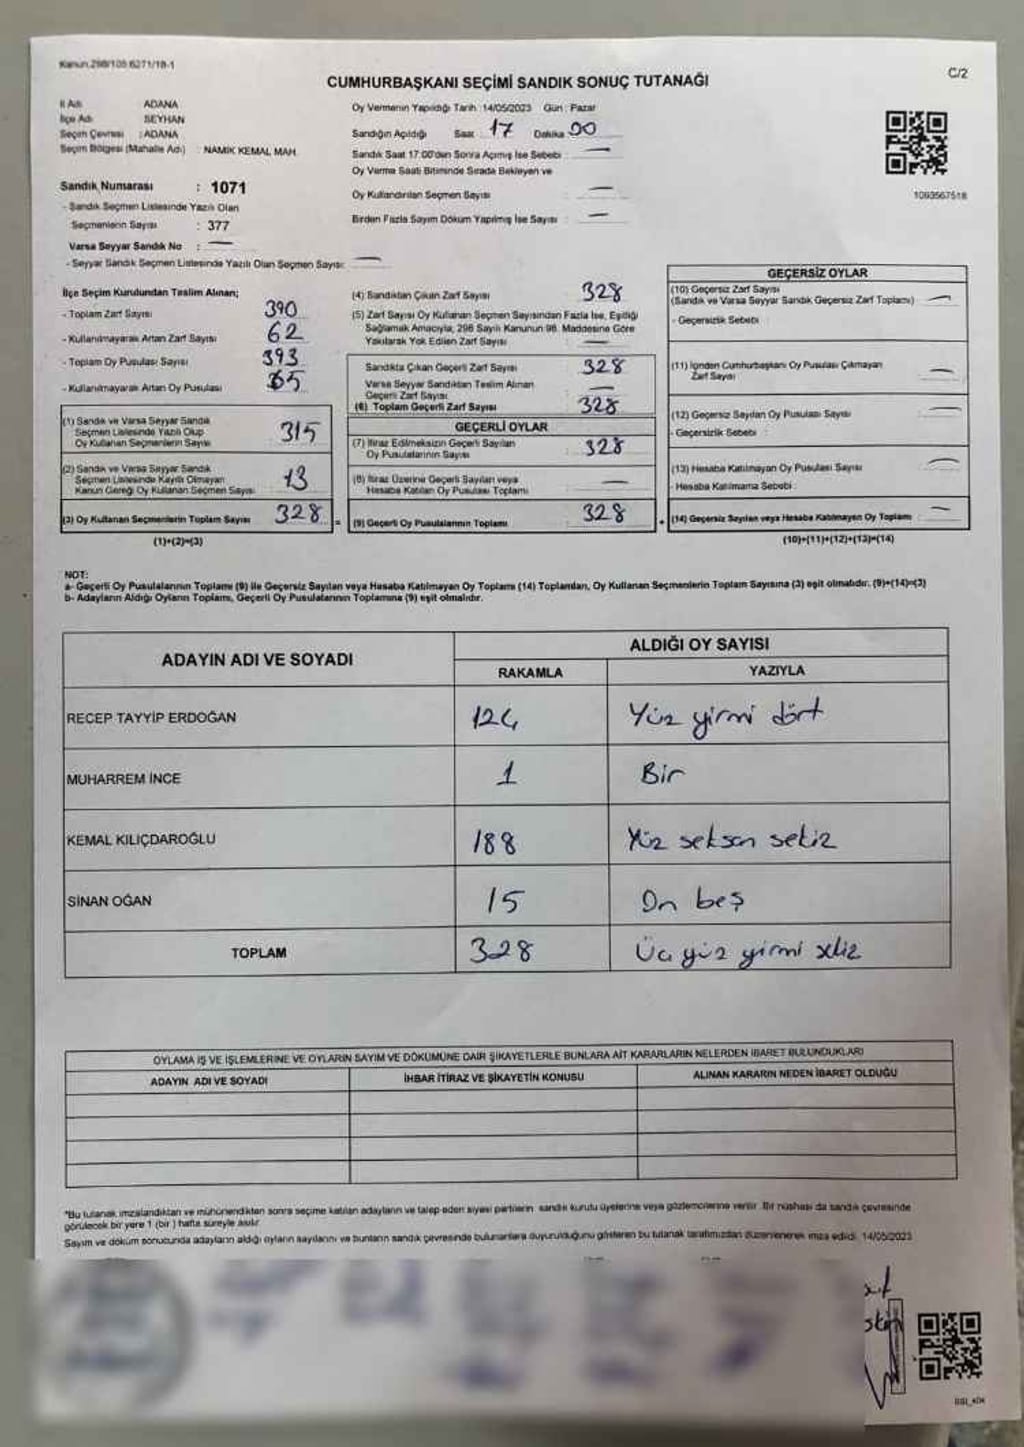 Kanun.298/105 6271/18-1
C/2
CUMHURBAŞKANI SEÇİMİ SANDIK SONUÇ TUTANAĞI
İl Adı ADANA
İlçe Adı SEYHAN
Seçim Çevresi : ADANA
Seçim Bölgesi (Mahalle Adı) : NAMIK KEMAL MAH.
Sandık Numarası : 1071
- Sandık Seçmen Listesinde Yazılı Olan
Seçmenlerin Sayısı : 377
Varsa Seyyar Sandık No : —
- Seyyar Sandık Seçmen Listesinde Yazılı Olan Seçmen Sayısı: —
Oy Vermenin Yapıldığı Tarih : 14/05/2023 Gün : Pazar
Sandığın Açıldığı Saat 17 Dakika 00
Sandık Saat 17:00'den Sonra Açılmış İse Sebebi : —
Oy Verme Saati Bitiminde Sırada Bekleyen ve
Oy Kullandırılan Seçmen Sayısı : —
Birden Fazla Sayım Döküm Yapılmış İse Sayısı : —
1093567518
İlçe Seçim Kurulundan Teslim Alınan;
- Toplam Zarf Sayısı 390
- Kullanılmayarak Artan Zarf Sayısı 62
- Toplam Oy Pusulası Sayısı 393
- Kullanılmayarak Artan Oy Pusulası 65
(1) Sandık ve Varsa Seyyar Sandık
Seçmen Listesinde Yazılı Olup
Oy Kullanan Seçmenlerin Sayısı 315
(2) Sandık ve Varsa Seyyar Sandık
Seçmen Listesinde Kayıtlı Olmayan
Kanun Gereği Oy Kullanan Seçmen Sayısı 13
(3) Oy Kullanan Seçmenlerin Toplam Sayısı 328 =
(1)+(2)=(3)
(4) Sandıktan Çıkan Zarf Sayısı 328
(5) Zarf Sayısı Oy Kullanan Seçmen Sayısından Fazla İse, Eşitliği
Sağlamak Amacıyla, 298 Sayılı Kanunun 98. Maddesine Göre
Yakılarak Yok Edilen Zarf Sayısı —
Sandıkta Çıkan Geçerli Zarf Sayısı 328
Varsa Seyyar Sandıktan Teslim Alınan
Geçerli Zarf Sayısı —
(6) Toplam Geçerli Zarf Sayısı 328
GEÇERLİ OYLAR
(7) İtiraz Edilmeksizin Geçerli Sayılan
Oy Pusulalarının Sayısı 328
(8) İtiraz Üzerine Geçerli Sayılan veya
Hesaba Katılan Oy Pusulası Toplamı —
(9) Geçerli Oy Pusulalarının Toplamı 328 +
GEÇERSİZ OYLAR
(10) Geçersiz Zarf Sayısı
(Sandık ve Varsa Seyyar Sandık Geçersiz Zarf Toplamı) —
- Geçersizlik Sebebi :
(11) İçinden Cumhurbaşkanı Oy Pusulası Çıkmayan
Zarf Sayısı —
(12) Geçersiz Sayılan Oy Pusulası Sayısı —
- Geçersizlik Sebebi :
(13) Hesaba Katılmayan Oy Pusulası Sayısı —
- Hesaba Katılmama Sebebi :
(14) Geçersiz Sayılan veya Hesaba Katılmayan Oy Toplamı —
(10)+(11)+(12)+(13)=(14)
NOT:
a- Geçerli Oy Pusulalarının Toplamı (9) ile Geçersiz Sayılan veya Hesaba Katılmayan Oy Toplamı (14) Toplamları, Oy Kullanan Seçmenlerin Toplam Sayısına (3) eşit olmalıdır. (9)+(14)=(3)
b- Adayların Aldığı Oyların Toplamı, Geçerli Oy Pusulalarının Toplamına (9) eşit olmalıdır.
ADAYIN ADI VE SOYADI
ALDIĞI OY SAYISI
RAKAMLA YAZIYLA
RECEP TAYYİP ERDOĞAN 124 Yüz yirmi dört
MUHARREM İNCE 1 Bir
KEMAL KILIÇDAROĞLU 188 Yüz seksen sekiz
SİNAN OĞAN 15 On beş
TOPLAM 328 Üç yüz yirmi sekiz
OYLAMA İŞ VE İŞLEMLERİNE VE OYLARIN SAYIM VE DÖKÜMÜNE DAİR ŞİKAYETLERLE BUNLARA AİT KARARLARIN NELERDEN İBARET BULUNDUKLARI
ADAYIN ADI VE SOYADI İHBAR İTİRAZ VE ŞİKAYETİN KONUSU ALINAN KARARIN NEDEN İBARET OLDUĞU
*Bu tutanak imzalandıktan ve mühürlendikten sonra seçime katılan adayların ve talep eden siyasi partilerin sandık kurulu üyelerine veya gözlemcilerine verilir. Bir nüshası da sandık çevresinde
görülecek bir yere 1 (bir) hafta süreyle asılır.
Sayım ve döküm sonucunda adayların aldığı oyların sayılarını ve bunların sandık çevresinde bulunanlara duyurulduğunu gösteren bu tutanak tarafımızdan düzenlenerek imza edildi. 14/05/2023